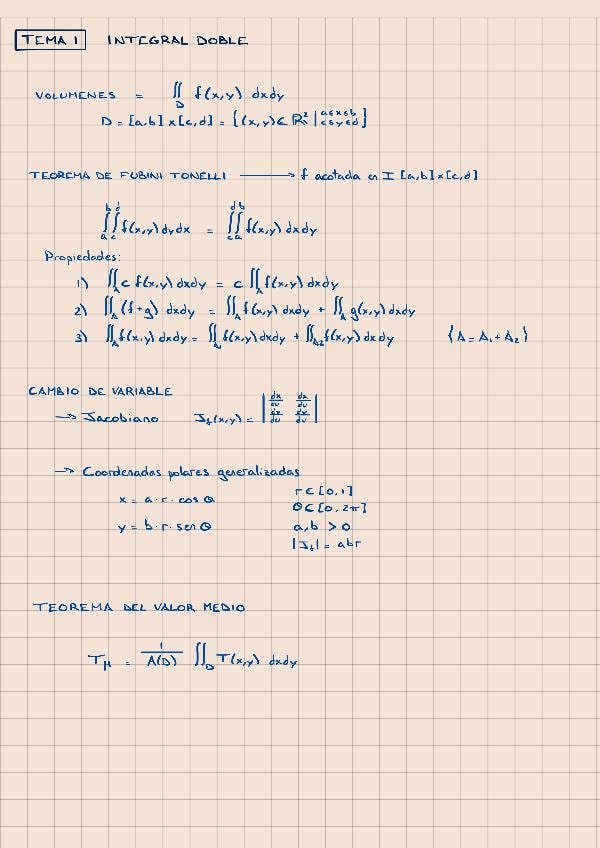 TEMA 1 INTEGRAL DOBLE
VOLUMENES = ∬_D f(x,y) dxdy
D = [a,b] x [c,d] = {(x,y) ∈ ℝ² | a≤x≤b c≤y≤d}
TEOREMA DE FUBINI TONELLI ⟶ f acotada en I [a,b] x [c,d]
∫_a^b ∫_c^d f(x,y) dy dx = ∫_c^d ∫_a^b f(x,y) dx dy
Propiedades:
1) ∬_A c f(x,y) dxdy = c ∬_A f(x,y) dxdy
2) ∬_A (f+g) dxdy = ∬_A f(x,y) dxdy + ∬_A g(x,y) dxdy
3) ∬_A f(x,y) dxdy = ∬_A₁ f(x,y) dxdy + ∬_A₂ f(x,y) dxdy {A = A₁ + A₂}
CAMBIO DE VARIABLE
→ Jacobiano J_f(x,y) = | dx/du dx/dv dy/du dy/dv |
→ Coordenadas polares generalizadas
x = a · r · cos θ r ∈ [0,1]
θ ∈ [0, 2π]
y = b · r · sen θ a,b > 0
|J_f| = abr
TEOREMA DEL VALOR MEDIO
T_μ = 1/A(D) ∬_D T(x,y) dxdy